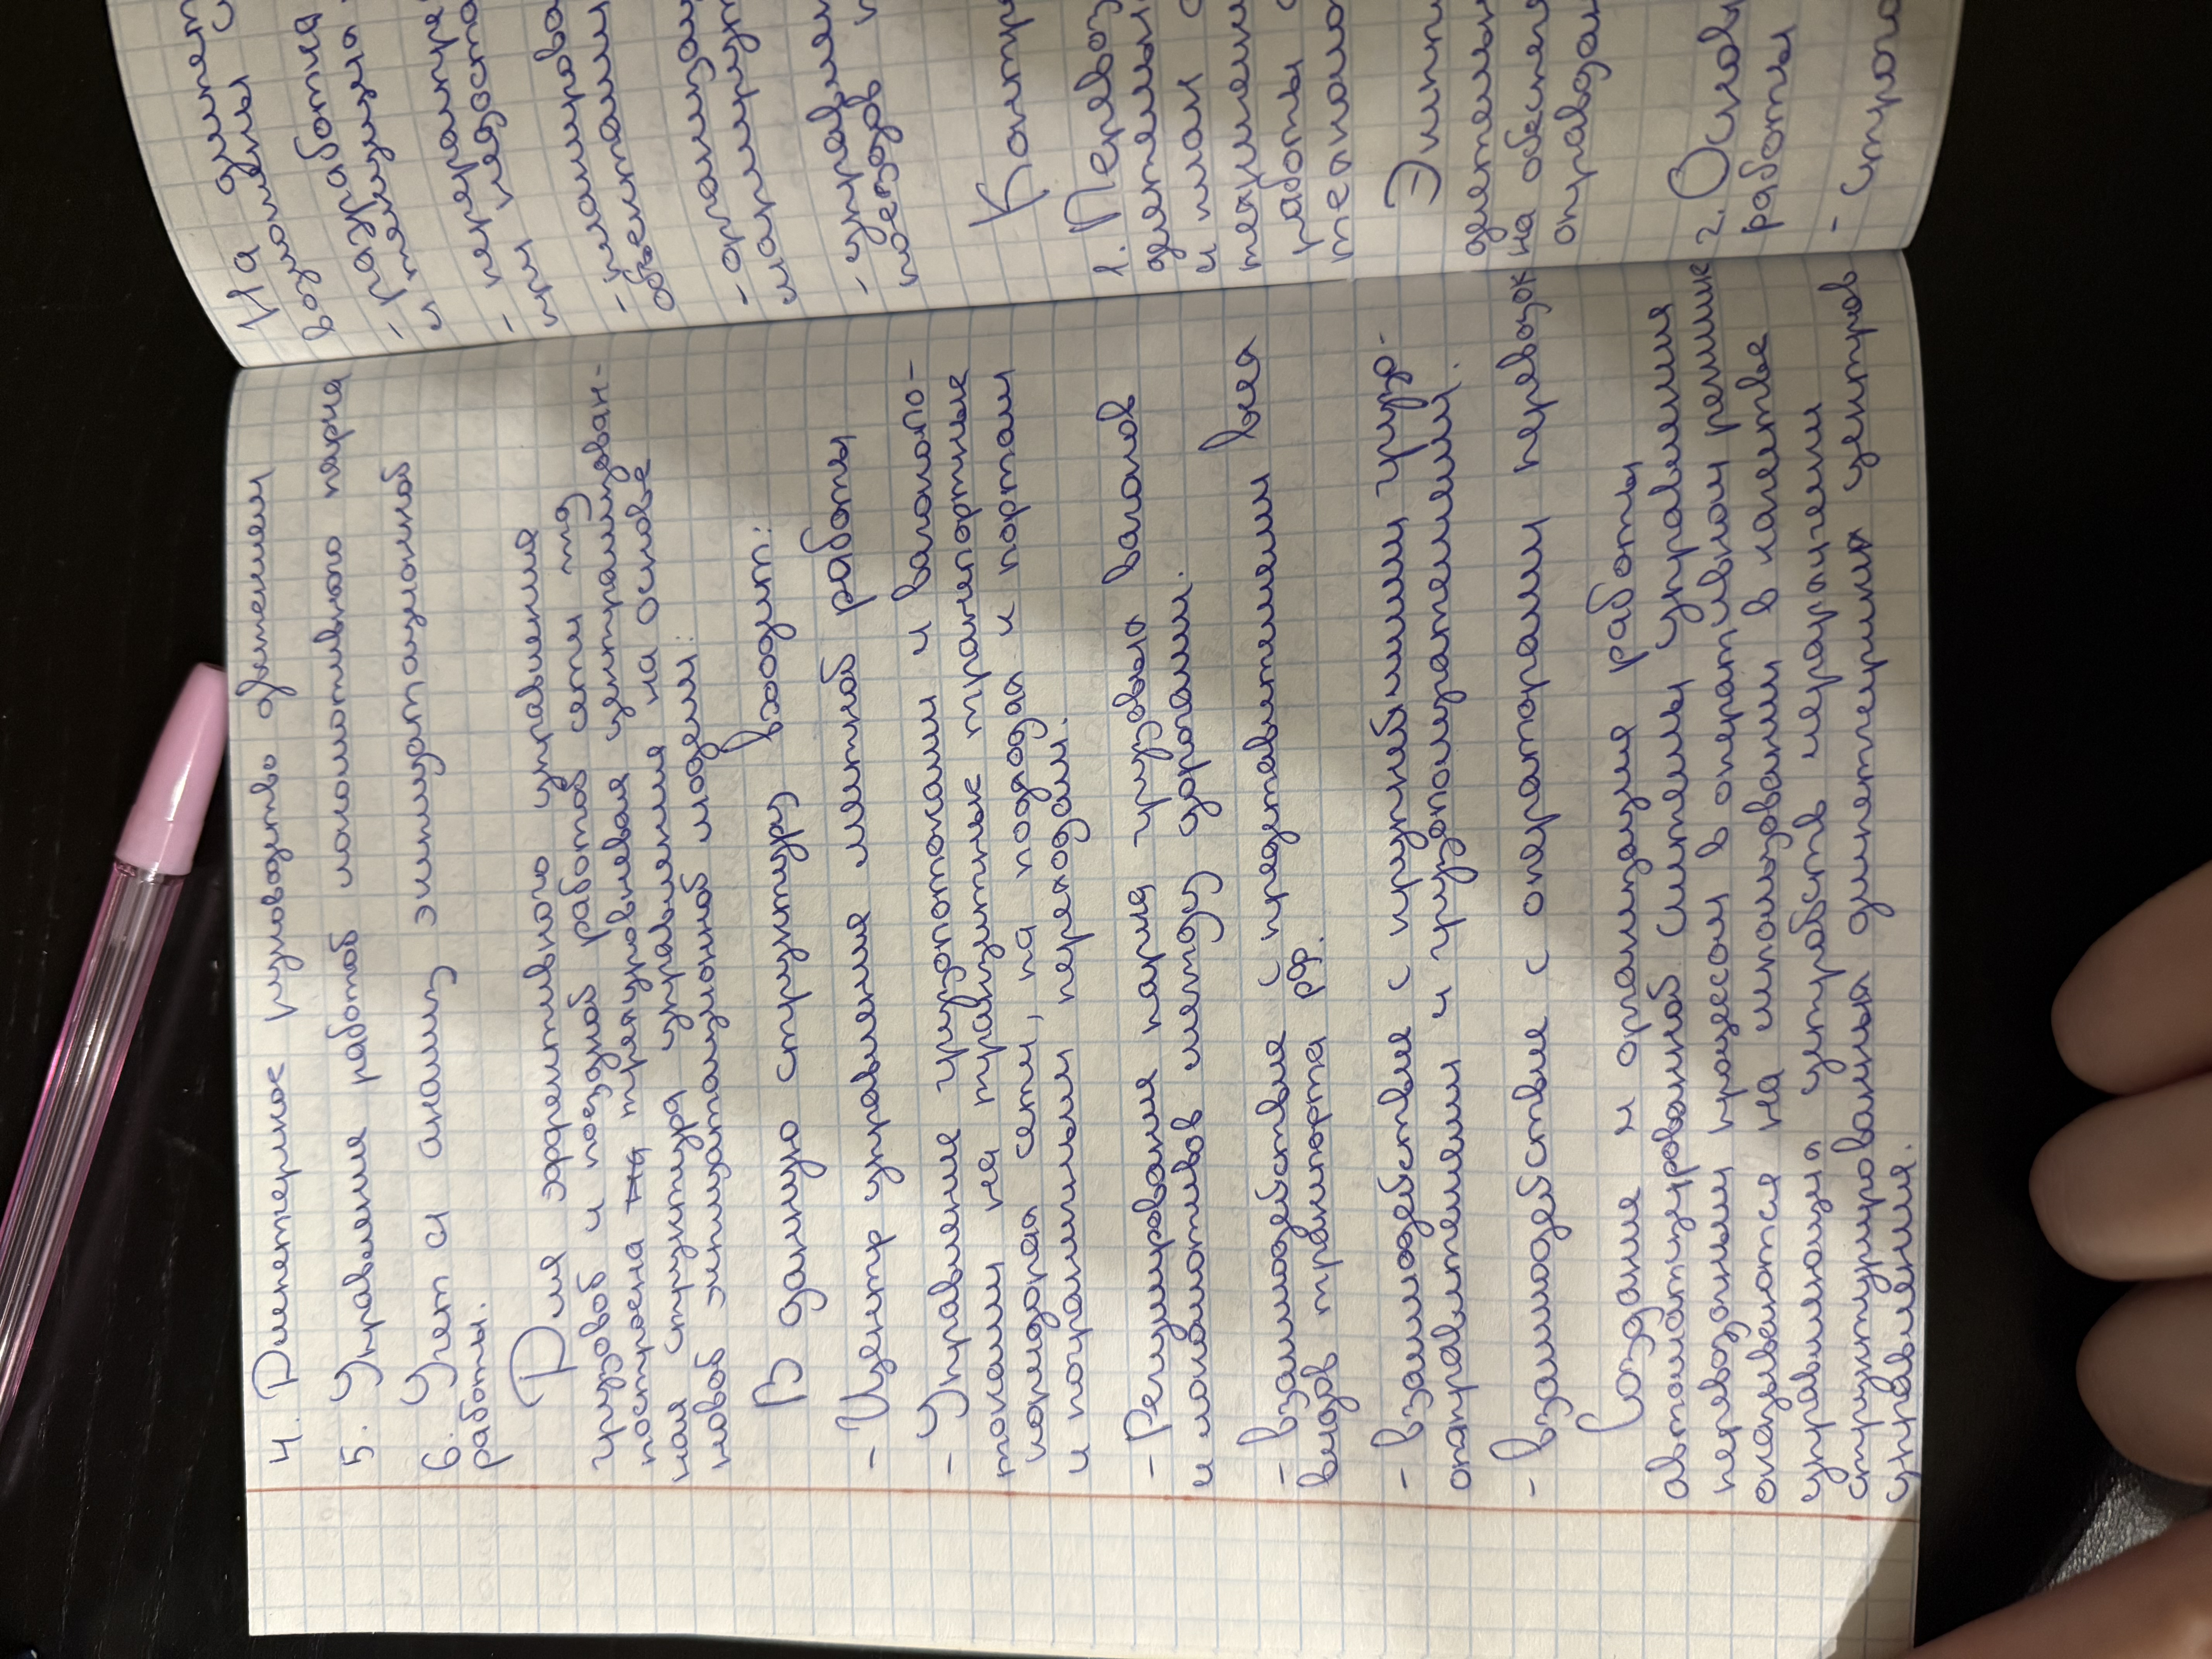 4. Диспетчерское руководство движением
5. Управление работой локомотивного парка
6. Учет и анализ эксплуатационной
работы.
Для эффективного управления
грузовой и поездной работой сети жд
построена на трехуровневая централизован-
ная структура управления на основе
новой эксплуатационной модели.
В данную структуру входит:
- Центр управления местной работы
- Управление грузопотоками и вагонопо-
токами на транзитные транспортные
коридорах сети, на подходах к портам
и пограничным переходам.
- Регулирование парка грузовых вагонов
и локомотивов между дорогами.
- взаимодействие с представителями всех
видов транспорта РФ.
- взаимодействие с крупнейшими грузо-
отправителями и грузополучателями.
- взаимодействие с операторами перевозок
Создание и организация работы
автоматизированной системы управления
перевозочным процессом в оперативном режиме
основывается на использовании в качестве
управляющих устройств иерархически
структурированных диспетчерских центров
управления.
На
возможны
разработка
- перераспре
при недоста
- планирова
- организац
- управлен
поездов
Контр
1. Перевоз
деятельн
и план
работы
Эксп
деятельн
на обеспеч
оправдан
2. Основ
работы
- строго